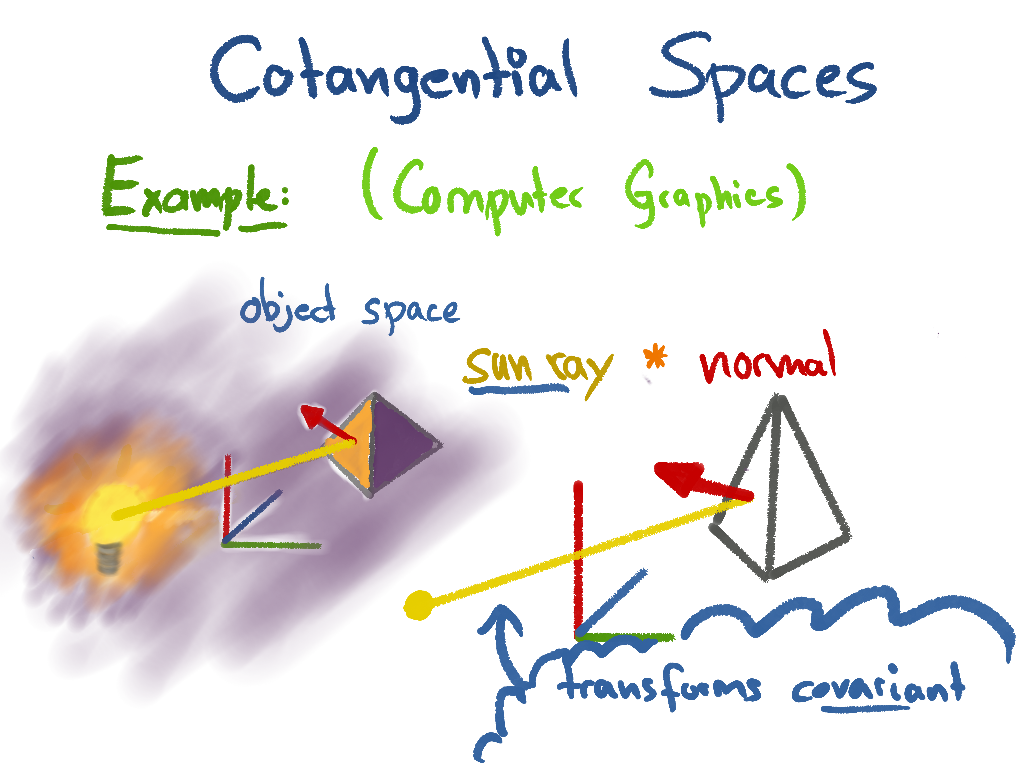 Cotangential Spaces
Example: (Computer Graphics)
object space
sun ray * normal
transforms covariant